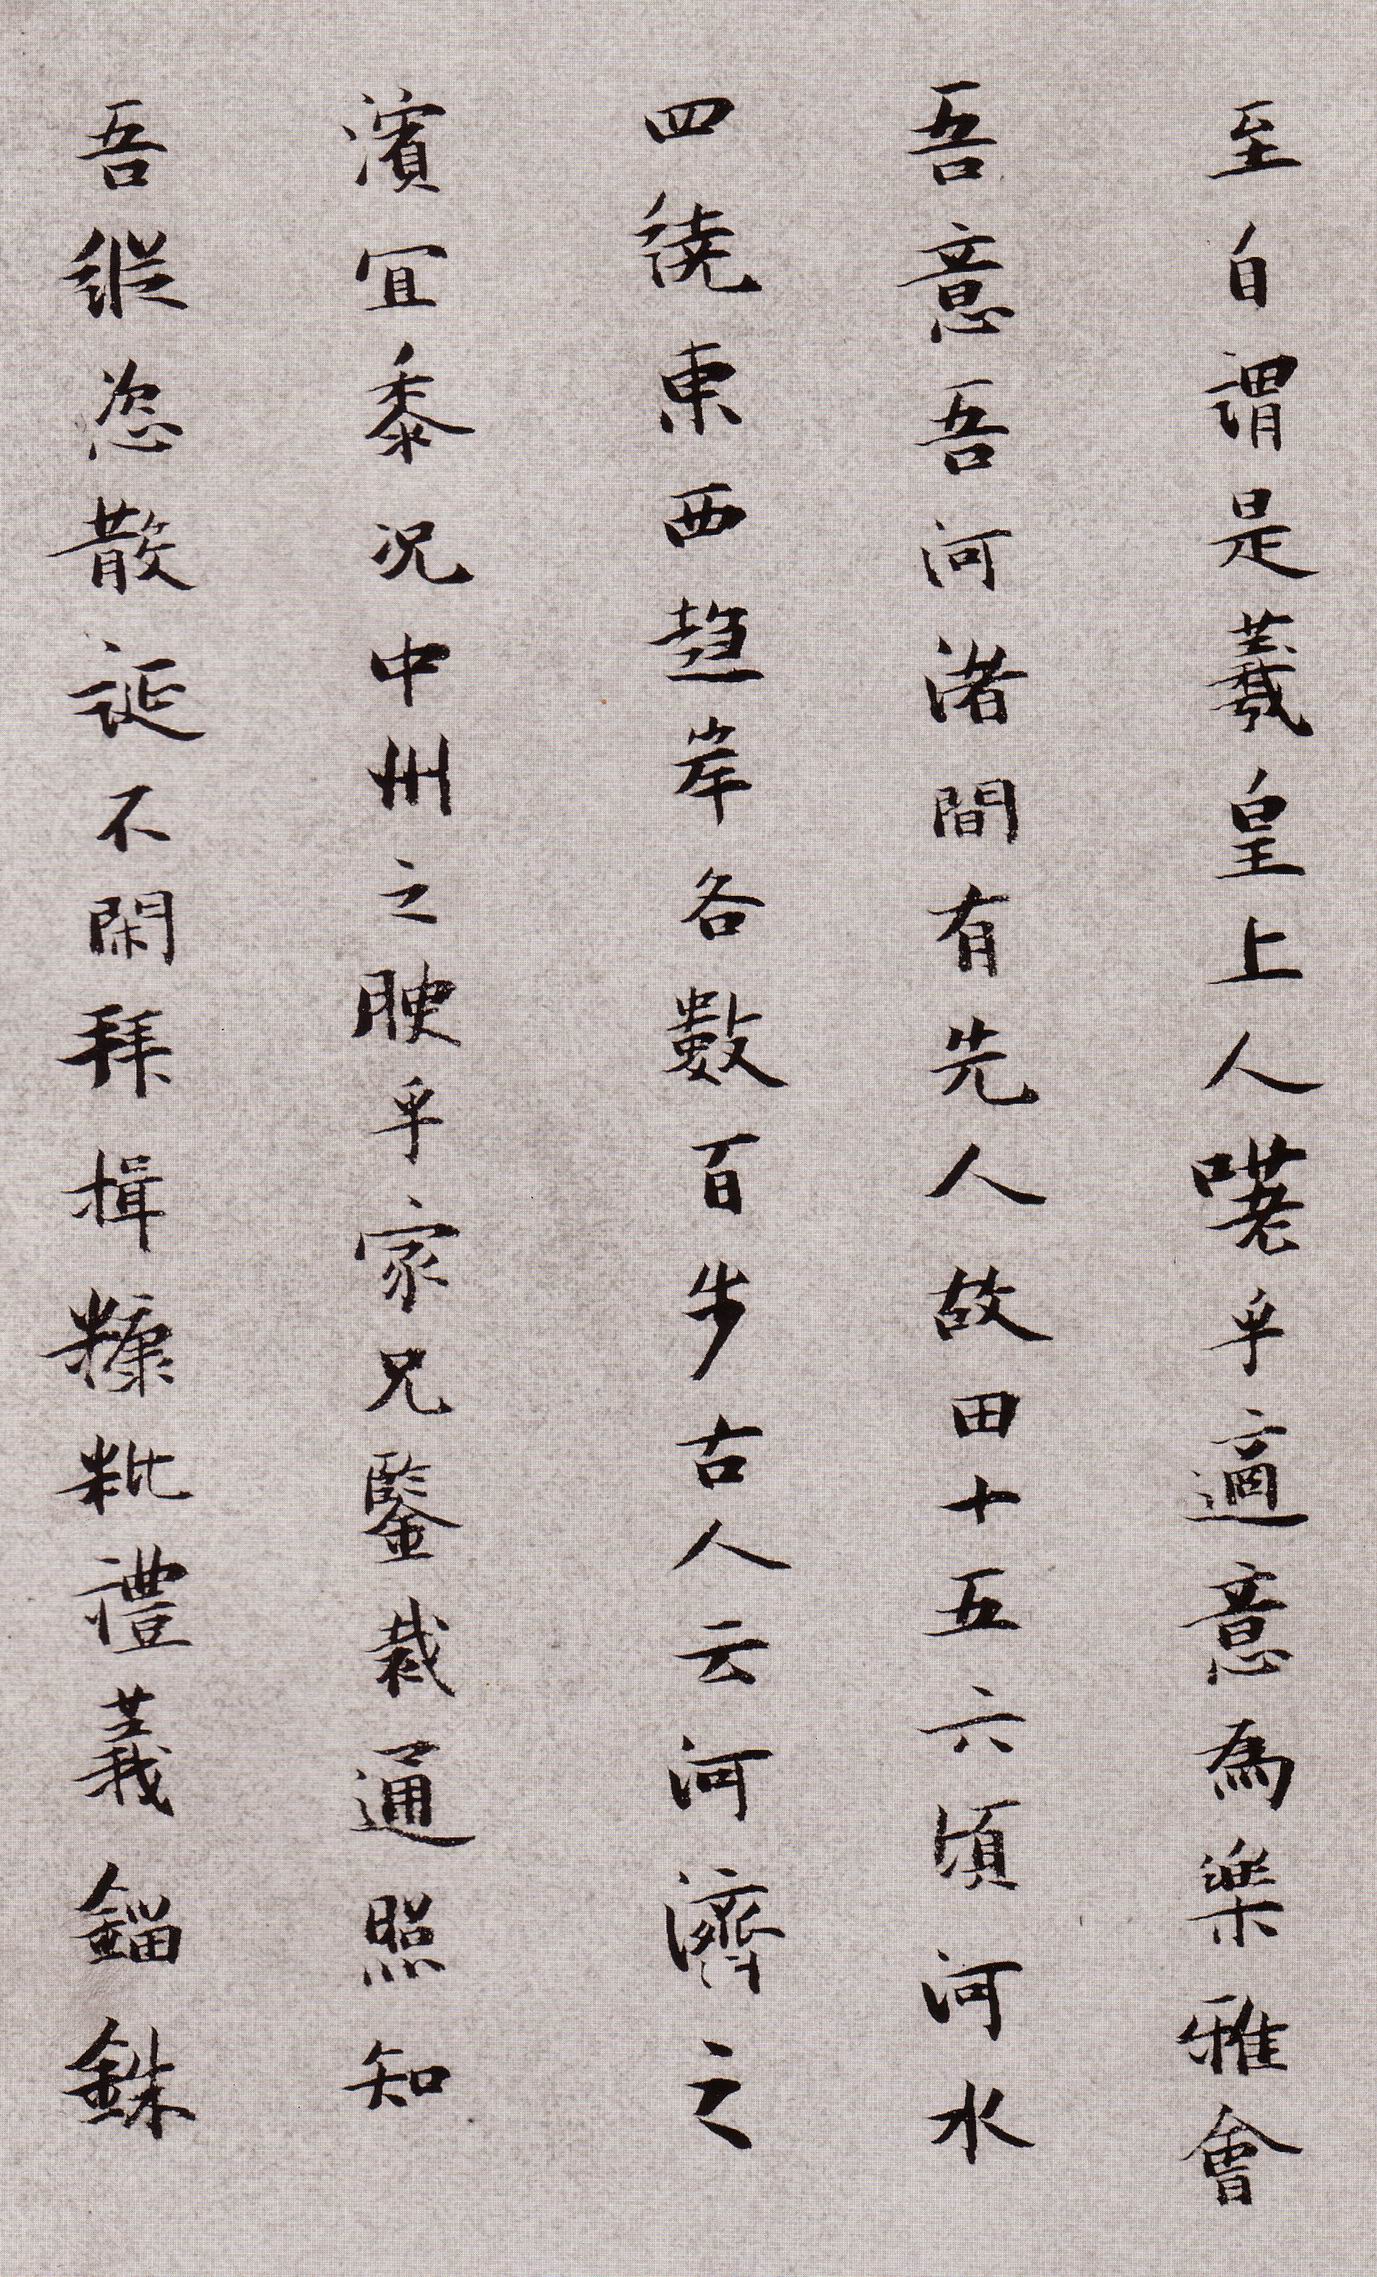 至自謂是羲皇上人嗟乎適意為樂雅會
吾意吾河渚間有先人故田十五六頃河水
四繞東西趨岸各數百步古人云河濟之
濱宜黍况中州之腴乎家兄鑒裁通照知
吾縱恣散誕不閑拜揖糠粃禮義錙銖